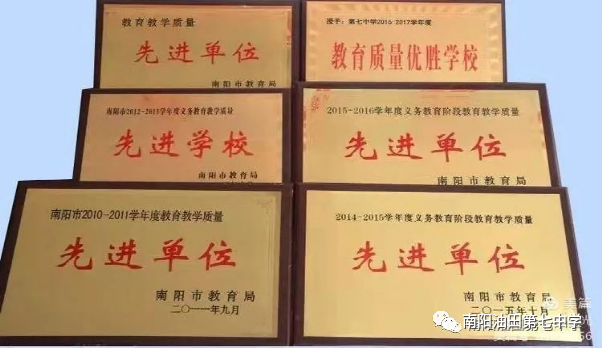 教育教学质量
先进单位
南阳市教育局
授予：第七中学2016-2017学年度
教育质量优胜学校
南阳市2012-2013学年度义务教育教学质量
先进学校
南阳市教育局
2015-2016学年度义务教育阶段教育教学质量
先进单位
南阳市教育局
南阳市2010-2011学年度教育教学质量
先进单位
南阳市教育局
二〇一一年九月
2014-2015学年度义务教育阶段教育教学质量
先进单位
南阳市教育局
二〇一五年十月
美篇
南阳油田第七中学